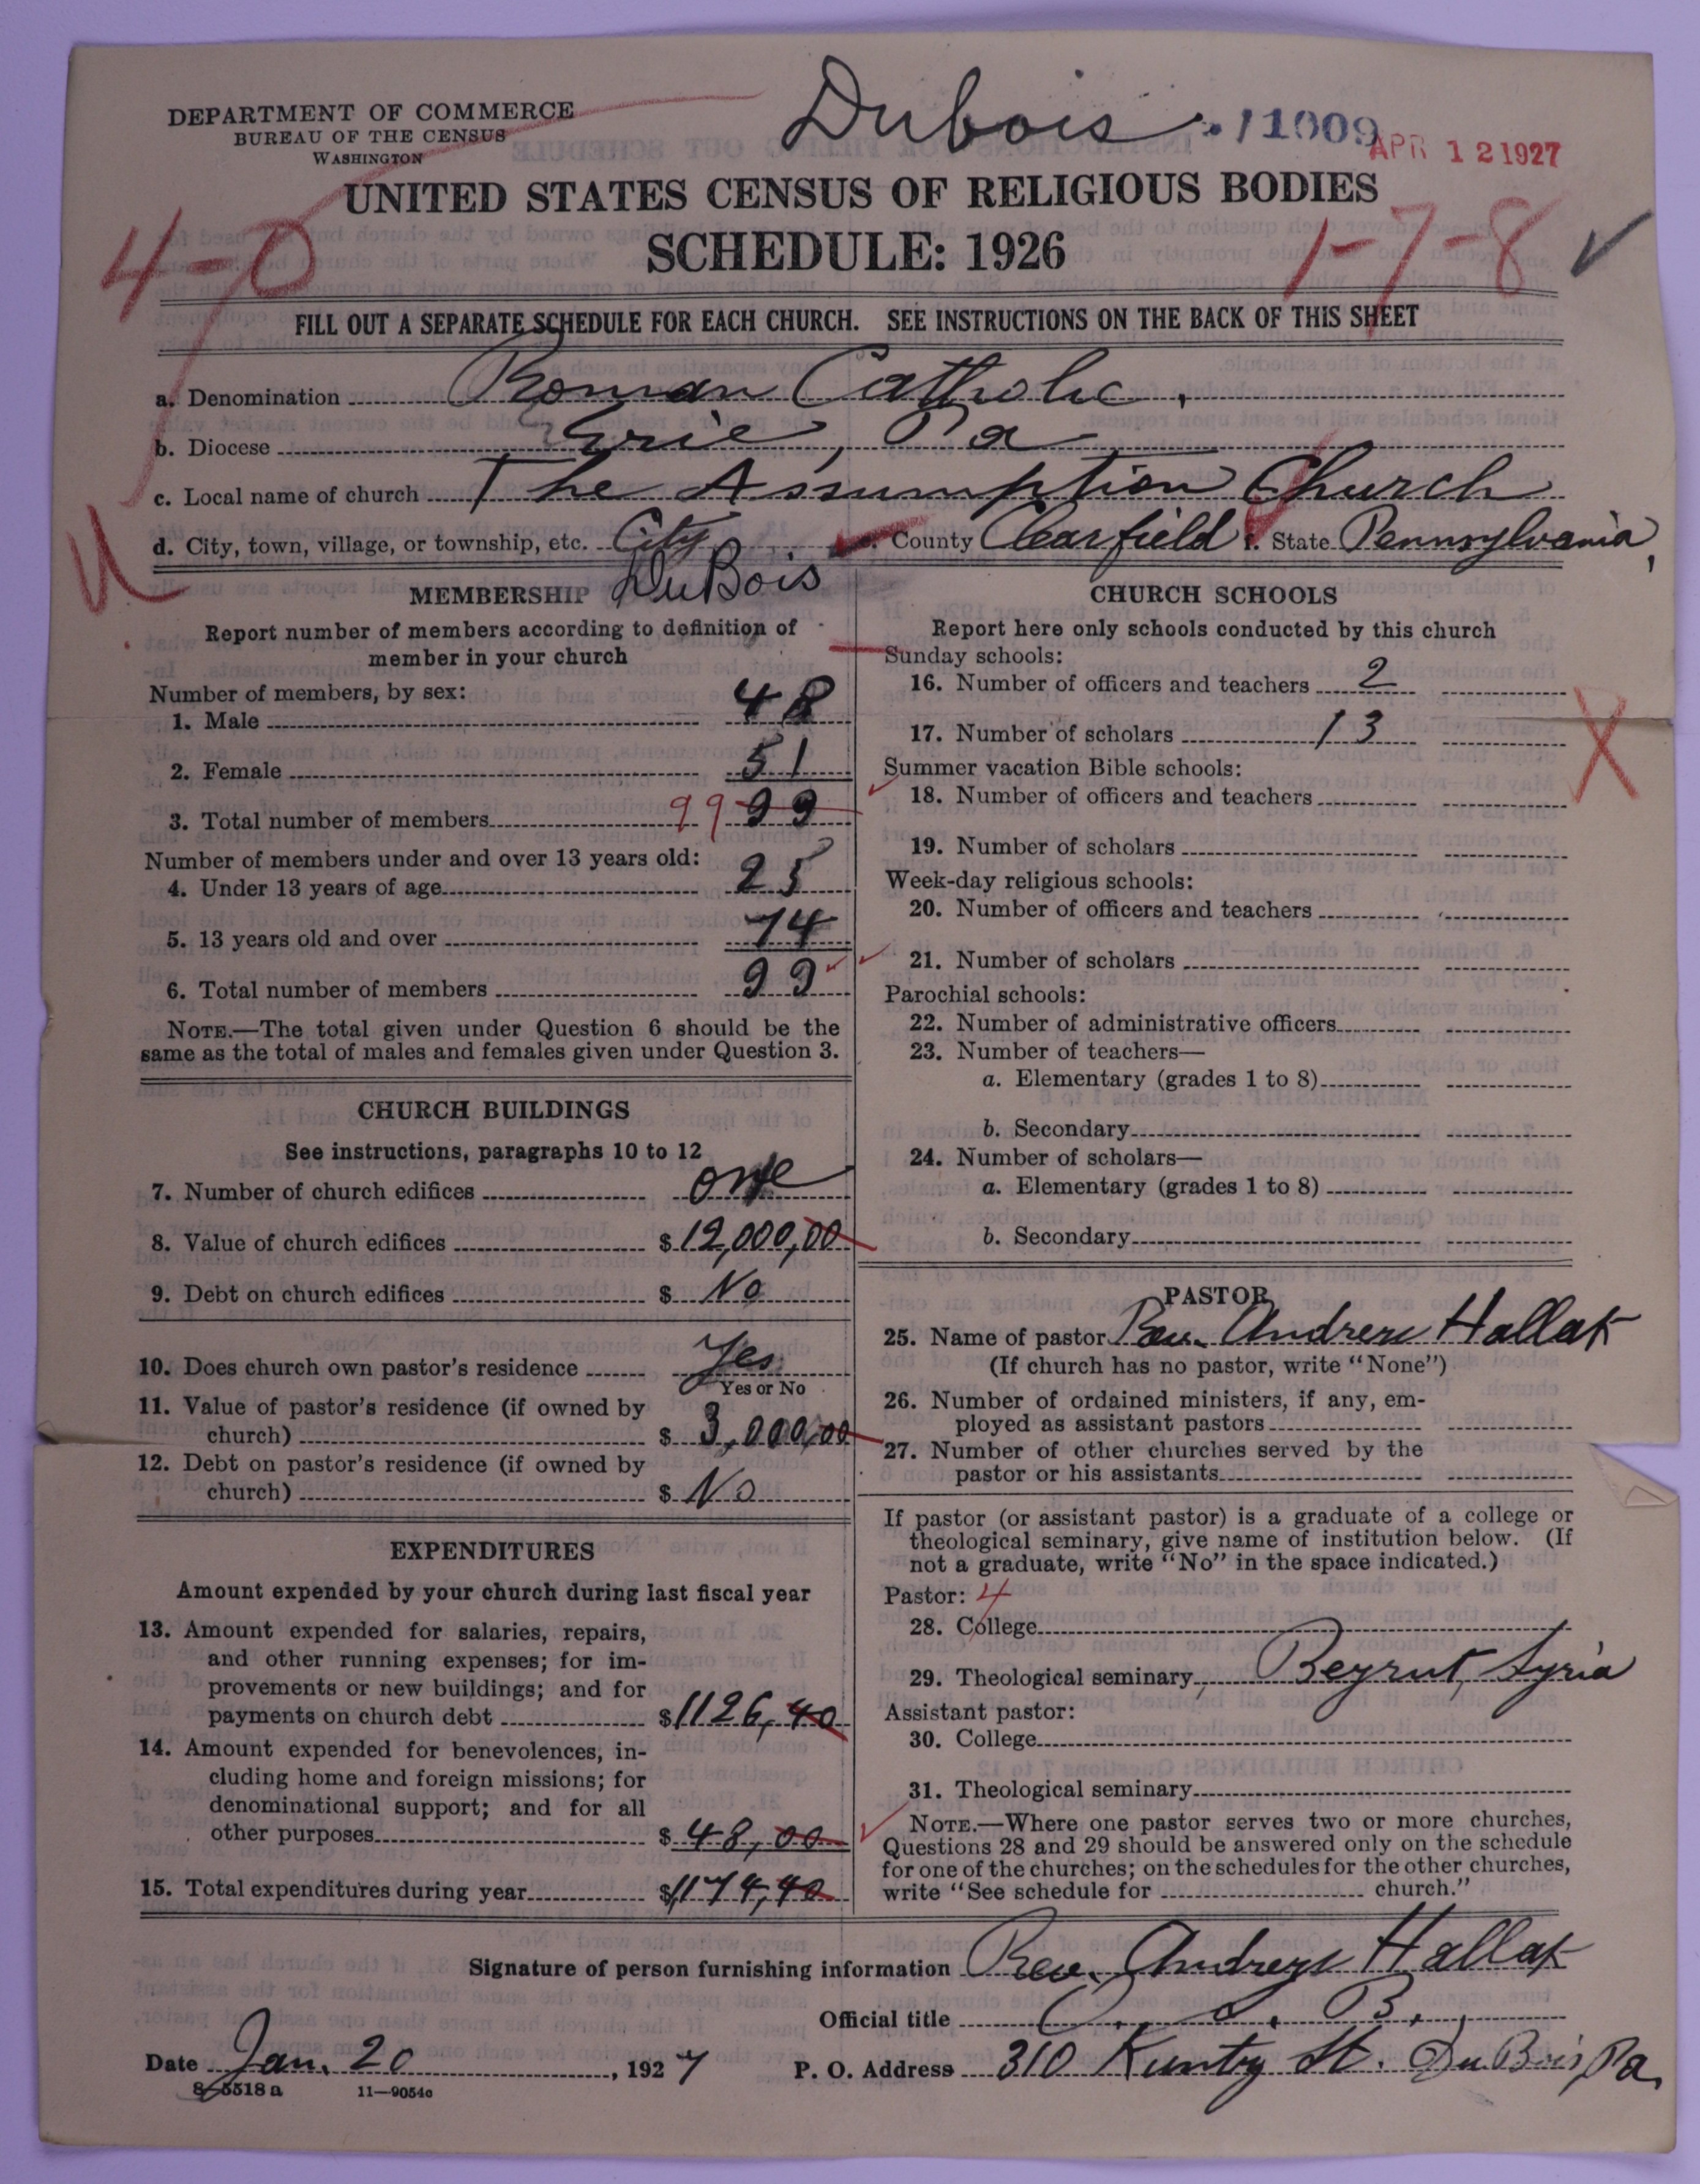 Dubois
11009
APR 12 1927
DEPARTMENT OF COMMERCE
BUREAU OF THE CENSUS
WASHINGTON
UNITED STATES CENSUS OF RELIGIOUS BODIES
SCHEDULE: 1926
4-0
1-7-8
FILL OUT A SEPARATE SCHEDULE FOR EACH CHURCH. SEE INSTRUCTIONS ON THE BACK OF THIS SHEET
a. Denomination Roman Catholic.
b. Diocese Erie, Pa
c. Local name of church The Assumption Church
d. City, town, village, or township, etc. City County Clearfield f. State Pennsylvania,
DuBois
U
MEMBERSHIP
Report number of members according to definition of
member in your church
Number of members, by sex:
1. Male 48
2. Female 51
3. Total number of members 99 99
Number of members under and over 13 years old:
4. Under 13 years of age 25
5. 13 years old and over 74
6. Total number of members 99
NOTE.—The total given under Question 6 should be the
same as the total of males and females given under Question 3.
CHURCH BUILDINGS
See instructions, paragraphs 10 to 12
7. Number of church edifices one
8. Value of church edifices $ 12,000,00
9. Debt on church edifices $ No
10. Does church own pastor's residence Yes
Yes or No
11. Value of pastor's residence (if owned by
church) $ 3,000,00
12. Debt on pastor's residence (if owned by
church) $ No
EXPENDITURES
Amount expended by your church during last fiscal year
13. Amount expended for salaries, repairs,
and other running expenses; for im-
provements or new buildings; and for
payments on church debt $ 1126,40
14. Amount expended for benevolences, in-
cluding home and foreign missions; for
denominational support; and for all
other purposes $ 48,00
15. Total expenditures during year $ 1174,40
CHURCH SCHOOLS
Report here only schools conducted by this church
Sunday schools:
16. Number of officers and teachers 2
17. Number of scholars 13
X
Summer vacation Bible schools:
18. Number of officers and teachers
19. Number of scholars
Week-day religious schools:
20. Number of officers and teachers
21. Number of scholars
Parochial schools:
22. Number of administrative officers
23. Number of teachers—
a. Elementary (grades 1 to 8)
b. Secondary
24. Number of scholars—
a. Elementary (grades 1 to 8)
b. Secondary
PASTOR
25. Name of pastor Rev. Andrew Hallak
(If church has no pastor, write "None")
26. Number of ordained ministers, if any, em-
ployed as assistant pastors
27. Number of other churches served by the
pastor or his assistants
If pastor (or assistant pastor) is a graduate of a college or
theological seminary, give name of institution below. (If
not a graduate, write "No" in the space indicated.)
Pastor: 4
28. College
29. Theological seminary Beyrut, Syria
Assistant pastor:
30. College
31. Theological seminary
NOTE.—Where one pastor serves two or more churches,
Questions 28 and 29 should be answered only on the schedule
for one of the churches; on the schedules for the other churches,
write "See schedule for church."
Signature of person furnishing information Rev. Andrew Hallak
Official title B.
Date Jan. 20, 1927 P. O. Address 310 St. DuBois, Pa.
8-5518 a 11—9054a